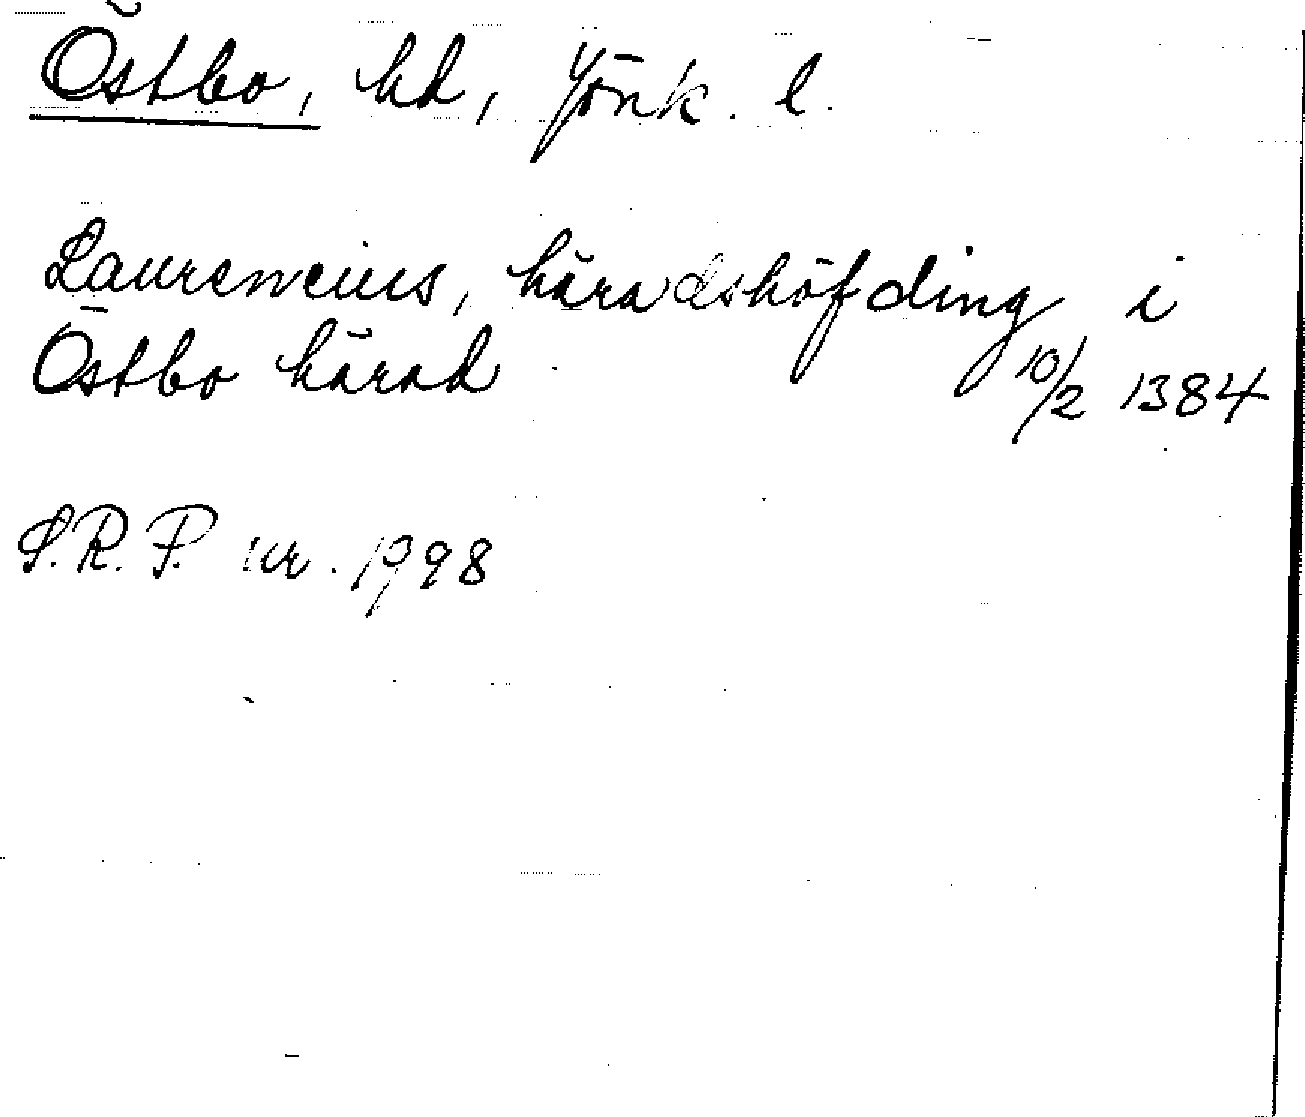 Östbo, hd, Jönk. l.
Laurencius, häradshöfding i
Östbo härad 10/2 1384
S.R.P. nr. 1998